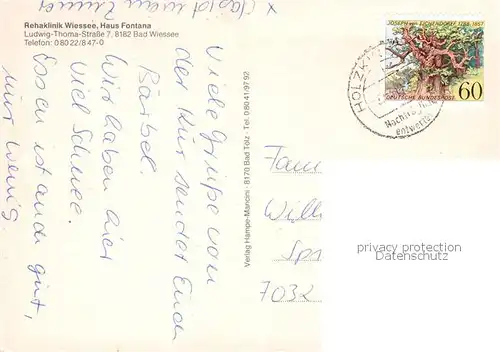 Rehaklinik Wiessee, Haus Fontana
Ludwig-Thoma-Straße 7, 8182 Bad Wiessee
Telefon: 0 80 22/8 47-0
Viele Grüße von
der Kur sendet Euch
Bärbel.
Wir haben hier
viel Schnee.
Essen ist auch gut,
nur wenig
Verlag Hampe-Mancini · 8170 Bad Tölz · Tel. 0 80 41/97 92
JOSEPH von EICHENDORFF 1788-1857
DEUTSCHE BUNDESPOST
60
HOLZK
entwertet
Fam
Will
Spr
7032
privacy protection
WWW.DELCAMPE.NET